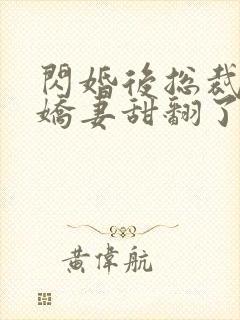 閃婚後總裁
嬌妻甜翻了
黃偉航